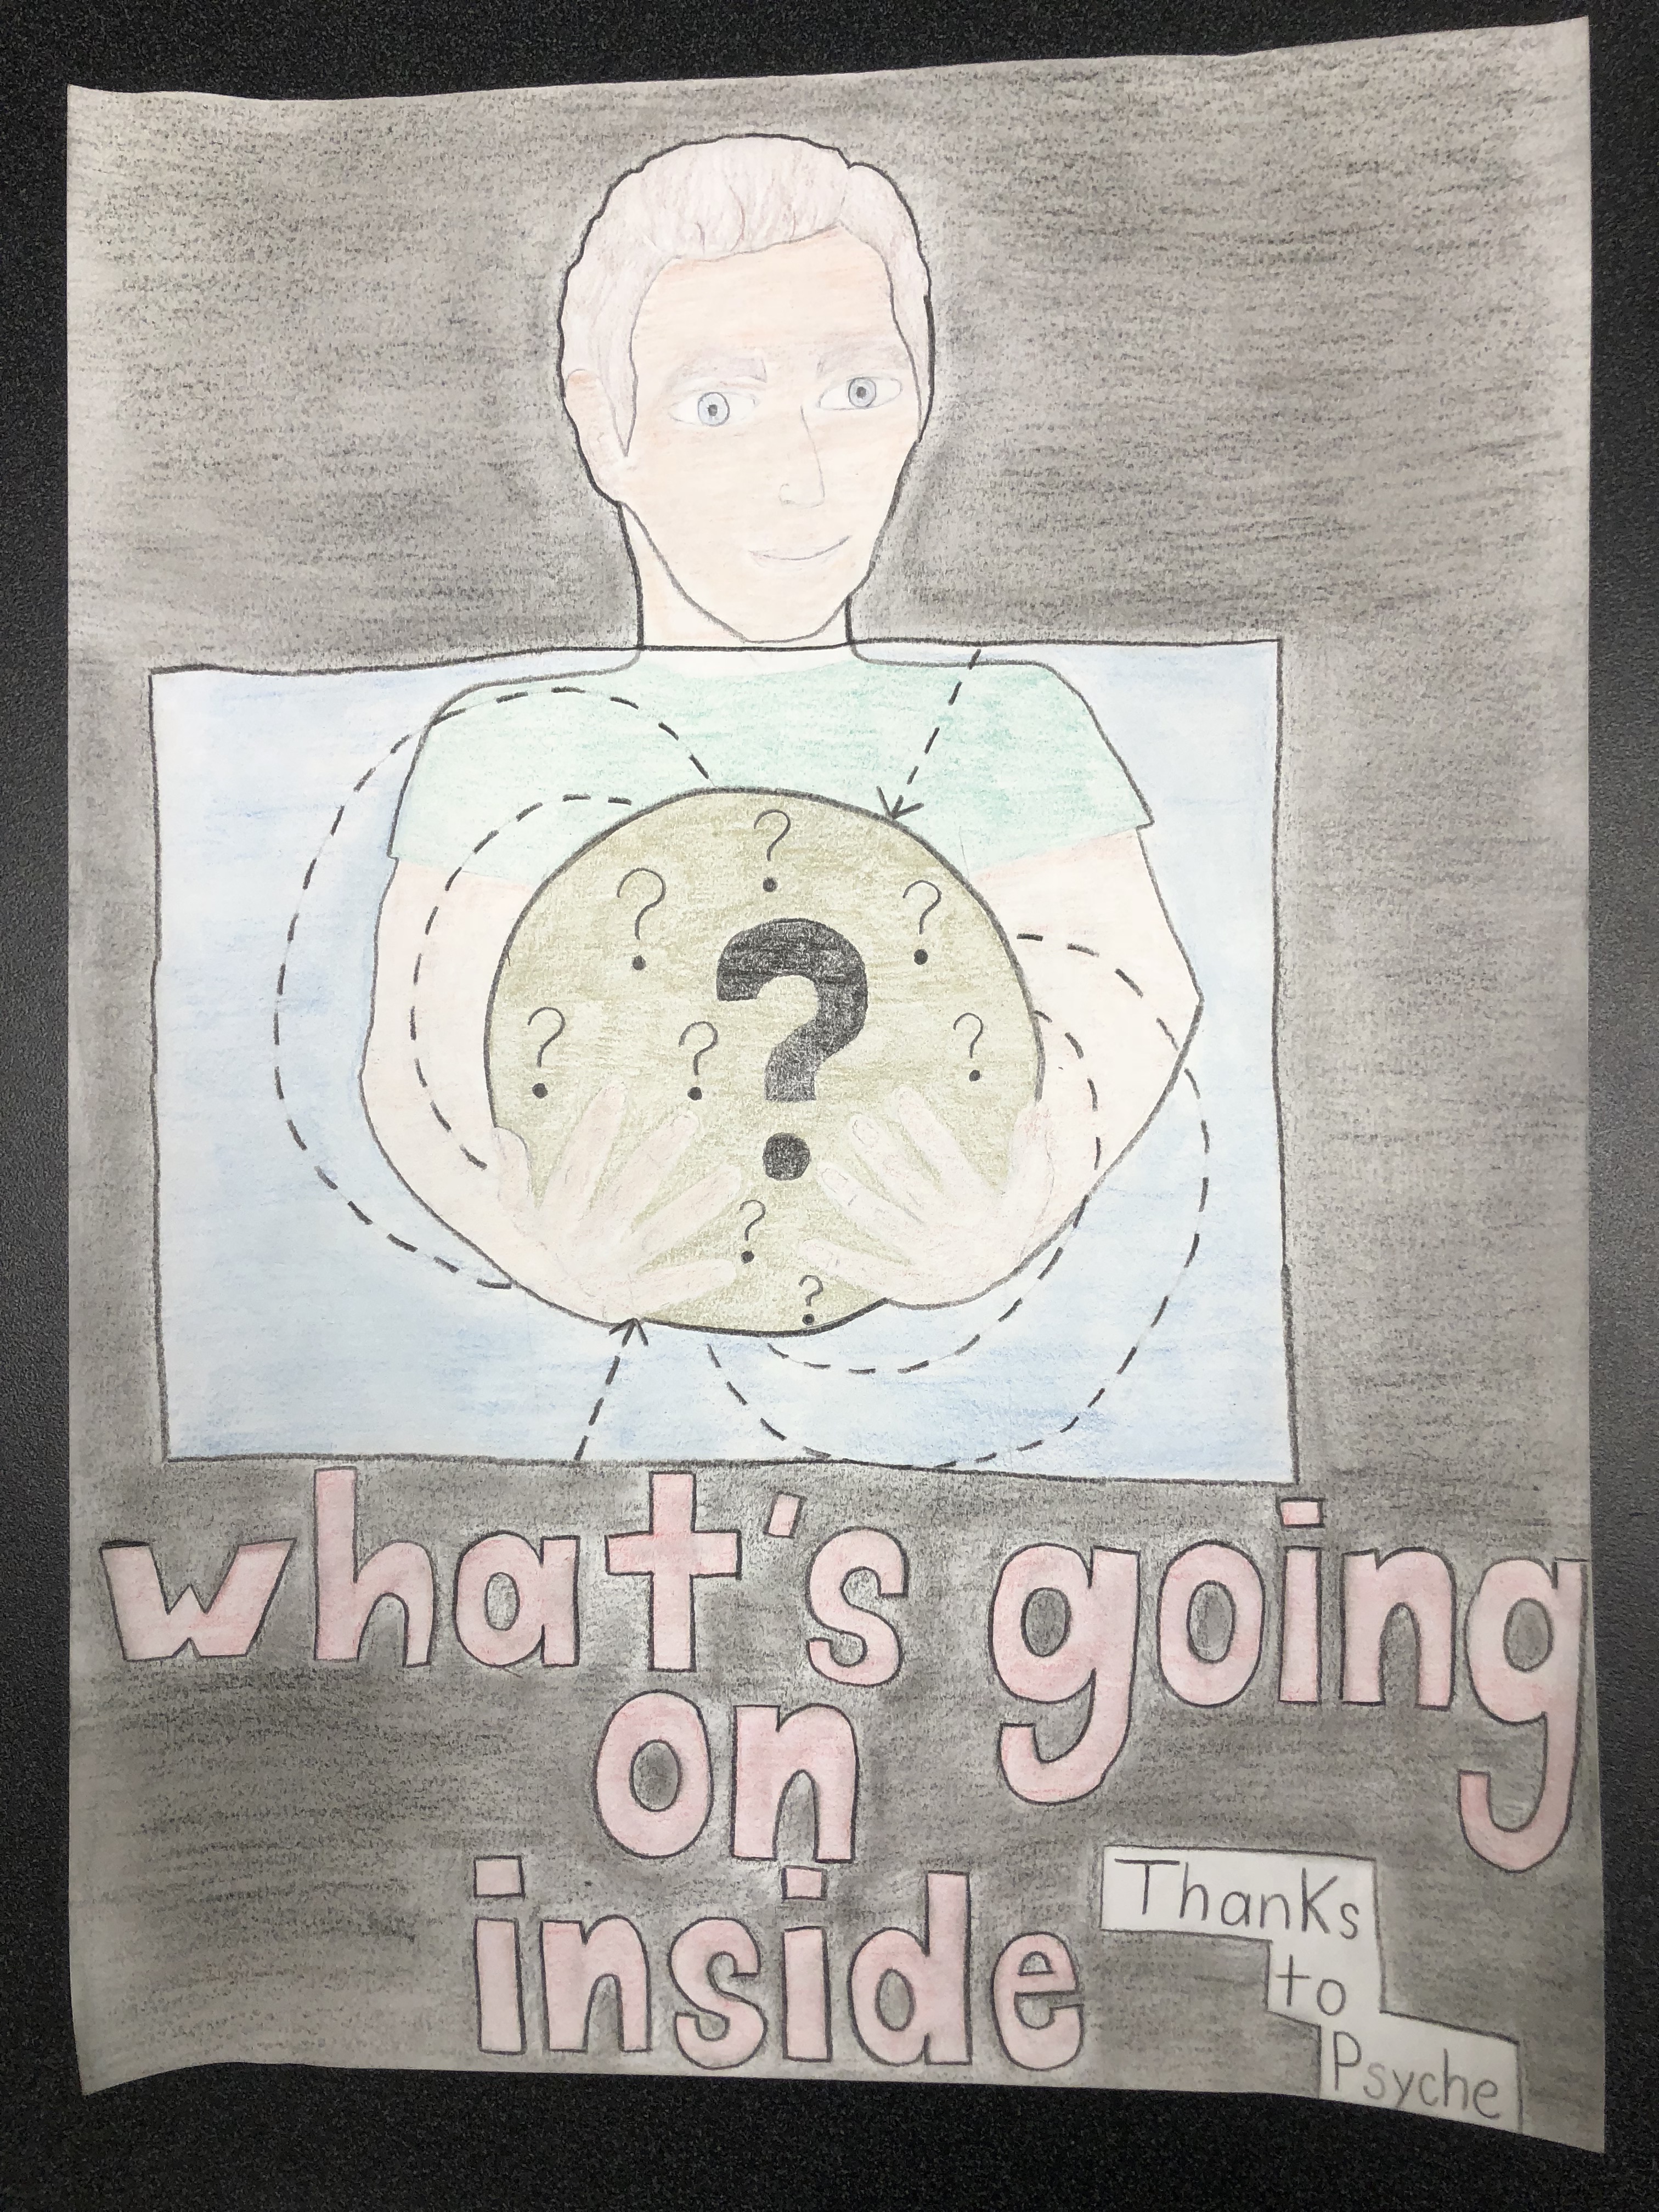 ?
?
?
?
?
?
?
?
?
what's going
on
inside
Thanks
to
Psyche